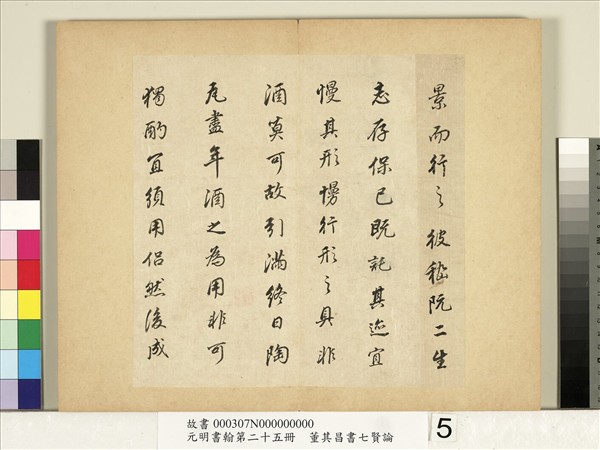 景而行之彼嵇阮二生
志存保已既託其迹宜
慢其形慢行形之具非
酒莫可故引滿終日陶
兀盡年酒之為用非可
獨酌宜須用侶然後成
故書 000307N000000000
元明書翰第二十五冊　董其昌書七賢論
5